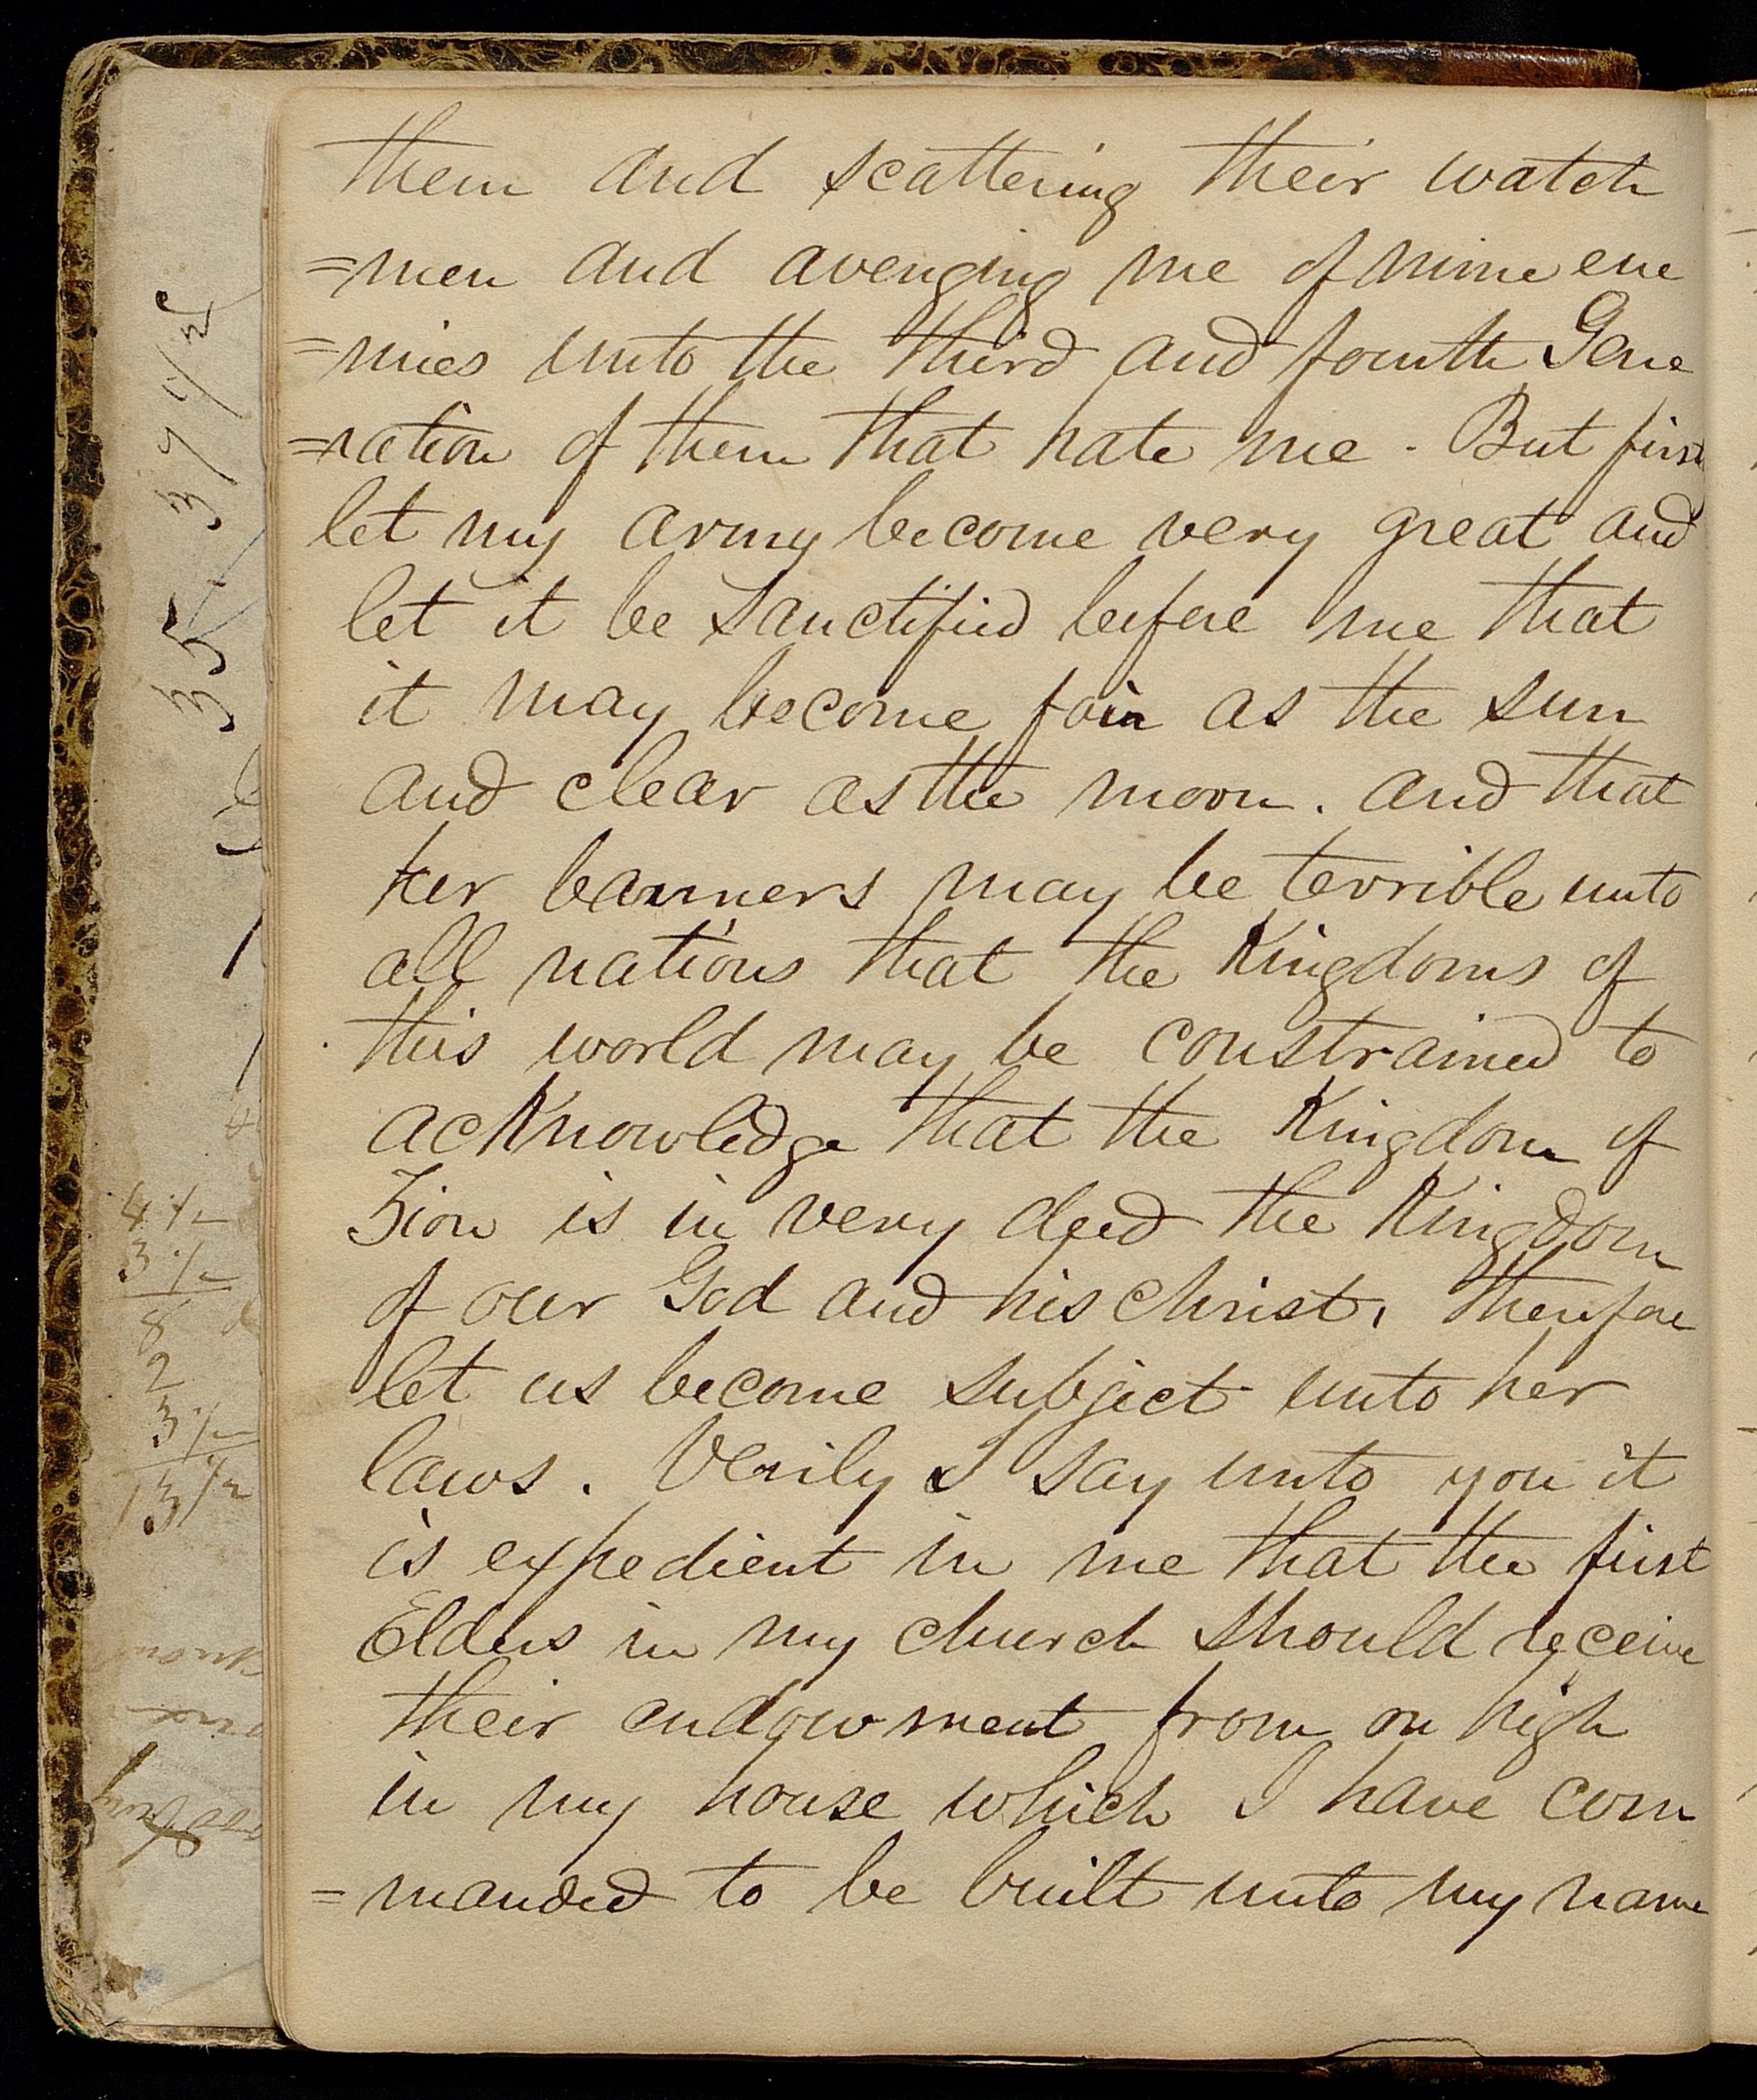 them and scattering their watch
=men and avenging me of mine ene
=mies unto the third and fourth Gene
=ration of them that hate me - But first
let my army become very great and
let it be Sanctified before me that
it may become fair as the sun
and clear as the moon. and that
her banners may be terrible unto
all nations that the Kingdoms of
this world may be constrained to
acKnowledge that the Kingdom of
Zion is in very deed the Kingdom
of our God and his Christ, therefore
let us become subject unto her
laws. Verily I say unto you it
is expedient in me that the first
Elders in my church should receive
their endowment from on high
in my house which I have com
=manded to be built unto my name
4 1/2
3 1/2
8
2
3 1/2
13 1/2